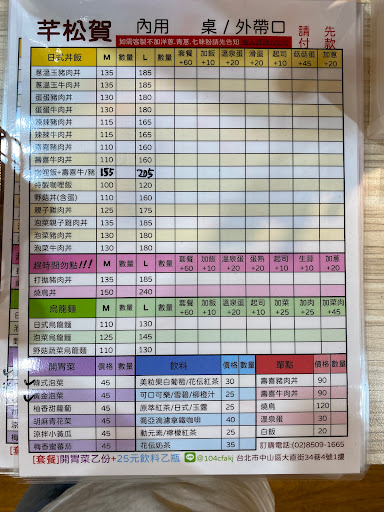 芋松賀 內用 桌/外帶口 請先付款
如需客製不加洋蔥.青蔥.七味粉請先告知
日式丼飯 M 數量 L 數量 套餐+60 加飯+10 溫泉蛋+20 滑蛋+20 起司+10 菇菇蛋+45 加蔥+20
蔥溫玉豬肉丼 135 185
蔥溫玉牛肉丼 135 185
蛋蛋豬肉丼 130 180
蛋蛋牛肉丼 130 180
辣辣豬丼 115 165
辣辣牛丼 115 165
壽喜豬肉丼 110 160
壽喜牛肉丼 110 160
咖哩飯+壽喜牛/豬 155 205
特製咖哩飯 100 120
野菇丼(含蛋) 110 160
親子雞肉丼 125 175
泡菜親子雞肉丼 135 185
泡菜豬肉丼 130 180
泡菜牛肉丼 130 180
趕時間勿點!!! M 數量 L 數量 套餐+60 加飯+10 溫泉蛋+20 蛋熟+20 起司+10 生蒜+10 加蔥+20
打拋豬肉丼 135 185
燒鳥丼 150 240
烏龍麵 M 數量 L 數量 套餐+60 加飯+10 溫泉蛋+20 起司+10 加菜+25 加肉+25 加菜肉+45
日式烏龍麵 110 130
泡菜烏龍麵 125 145
野菇蔬菜烏龍麵 110 130
開胃菜 價格 數量 飲料 價格 數量 單點 價格 數量
韓式泡菜 45 美粒果白葡萄/花伝紅茶 30 壽喜豬肉丼 90
黃金泡菜 45 可口可樂/雪碧/柳橙汁 25 壽喜牛肉丼 90
柚香甜蘿蔔 45 原萃紅茶/日式/玉露 25 燒鳥 120
胡麻青花菜 45 喬亞滴濾拿鐵咖啡 40 溫泉蛋 30
涼拌小黃瓜 45 動元素/檸檬紅茶 25 白飯 20
梅香蜜番茄 45 花伝奶茶 35 訂購電話:(02)8509-1665
[套餐]開胃菜乙份+25元飲料乙瓶 @104cfakj 台北市中山區大直街34巷4號1樓